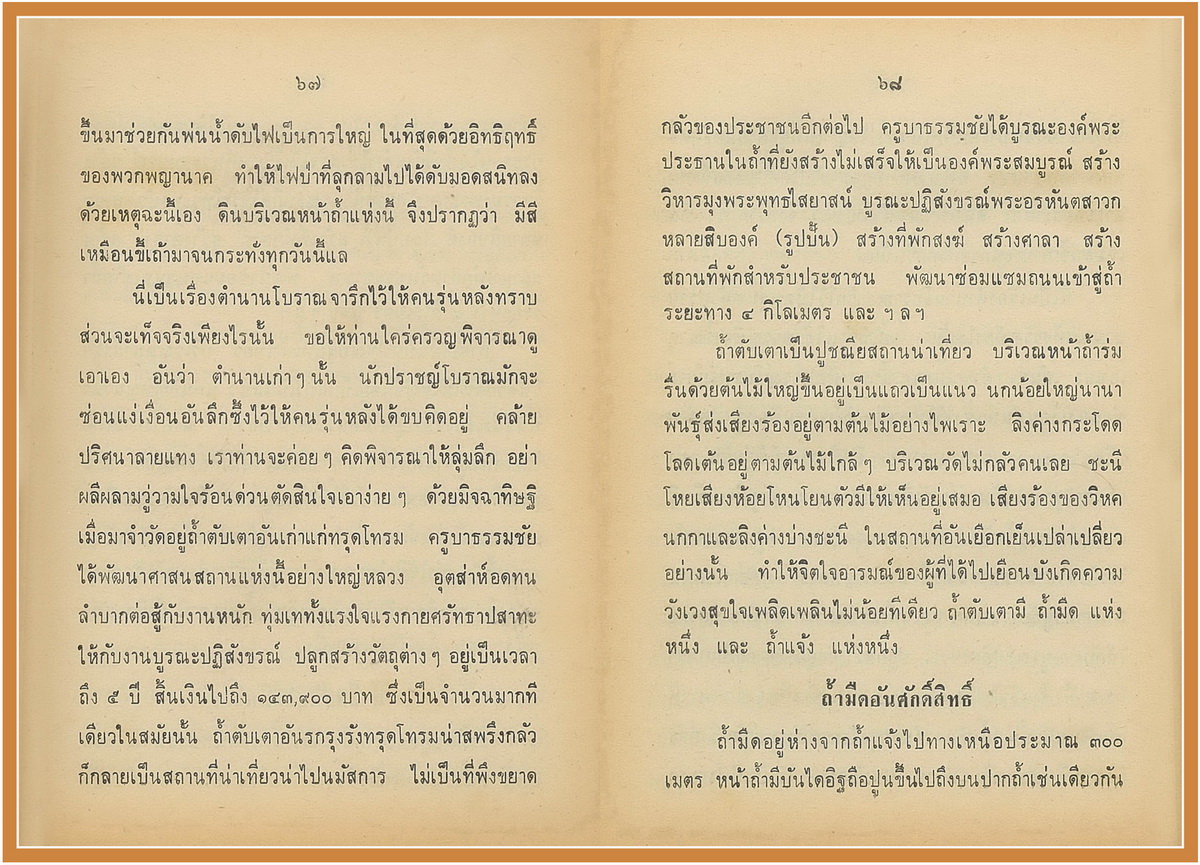 ๖๗
ขึ้นมาช่วยกันพ่นน้ำดับไฟเป็นการใหญ่ ในที่สุดด้วยอิทธิฤทธิ์
ของพวกพญานาค ทำให้ไฟป่าที่ลุกลามไปได้ดับมอดสนิทลง
ด้วยเหตุฉะนี้เอง ดินบริเวณหน้าถ้ำแห่งนี้ จึงปรากฏว่า มีสี
เหมือนขี้เถ้ามาจนกระทั่งทุกวันนี้แล
นี่เป็นเรื่องตำนานโบราณจารึกไว้ให้คนรุ่นหลังทราบ
ส่วนจะเท็จจริงเพียงไรนั้น ขอให้ท่านใคร่ครวญพิจารณาดู
เอาเอง อันว่า ตำนานเก่าๆ นั้น นักปราชญ์โบราณมักจะ
ซ่อนแง่เงื่อนอันลึกซึ้งไว้ให้คนรุ่นหลังได้ขบคิดอยู่ คล้าย
ปริศนาลายแทง เราท่านจะค่อยๆ คิดพิจารณาให้ลุ่มลึก อย่า
ผลีผลามวู่วามใจร้อนด่วนตัดสินใจเอาง่ายๆ ด้วยมิจฉาทิษฐิ
เมื่อมาจำวัดอยู่ถ้ำตับเตาอันเก่าแก่ทรุดโทรม ครูบาธรรมชัย
ได้พัฒนาศาสนสถานแห่งนี้อย่างใหญ่หลวง อุตส่าห์อดทน
ลำบากต่อสู้กับงานหนัก ทุ่มเททั้งแรงใจแรงกายศรัทธาปสาทะ
ให้กับงานบูรณะปฏิสังขรณ์ ปลูกสร้างวัตถุต่างๆ อยู่เป็นเวลา
ถึง ๕ ปี สิ้นเงินไปถึง ๑๔๓,๙๐๐ บาท ซึ่งเป็นจำนวนมากที
เดียวในสมัยนั้น ถ้ำตับเตาอันรกรุงรังทรุดโทรมน่าสพรึงกลัว
ก็กลายเป็นสถานที่น่าเที่ยวน่าไปนมัสการ ไม่เป็นที่พึงขยาด
๖๘
กลัวของประชาชนอีกต่อไป ครูบาธรรมชัยได้บูรณะองค์พระ
ประธานในถ้ำที่ยังสร้างไม่เสร็จให้เป็นองค์พระสมบูรณ์ สร้าง
วิหารมุงพระพุทธไสยาสน์ บูรณะปฏิสังขรณ์พระอรหันตสาวก
หลายสิบองค์ (รูปปั้น) สร้างที่พักสงฆ์ สร้างศาลา สร้าง
สถานที่พักสำหรับประชาชน พัฒนาซ่อมแซมถนนเข้าสู่ถ้ำ
ระยะทาง ๔ กิโลเมตร และ ฯลฯ
ถ้ำตับเตาเป็นปูชณียสถานน่าเที่ยว บริเวณหน้าถ้ำร่ม
รื่นด้วยต้นไม้ใหญ่ขึ้นอยู่เป็นแถวเป็นแนว นกน้อยใหญ่นานา
พันธุ์ส่งเสียงร้องอยู่ตามต้นไม้อย่างไพเราะ ลิงค่างกระโดด
โลดเต้นอยู่ตามต้นไม้ใกล้ๆ บริเวณวัดไม่กลัวคนเลย ชะนี
โหยเสียงห้อยโหนโยนตัวมีให้เห็นอยู่เสมอ เสียงร้องของวิหค
นกกาและลิงค่างบ่างชะนี ในสถานที่อันเยือกเย็นเปล่าเปลี่ยว
อย่างนั้น ทำให้จิตใจอารมณ์ของผู้ที่ได้ไปเยือนบังเกิดความ
วังเวงสุขใจเพลิดเพลินไม่น้อยทีเดียว ถ้ำตับเตามี ถ้ำมืด แห่ง
หนึ่ง และ ถ้ำแจ้ง แห่งหนึ่ง
ถ้ำมืดอันศักดิ์สิทธิ์
ถ้ำมืดอยู่ห่างจากถ้ำแจ้งไปทางเหนือประมาณ ๓๐๐
เมตร หน้าถ้ำมีบันไดอิฐถือปูนขึ้นไปถึงบนปากถ้ำเช่นเดียวกัน